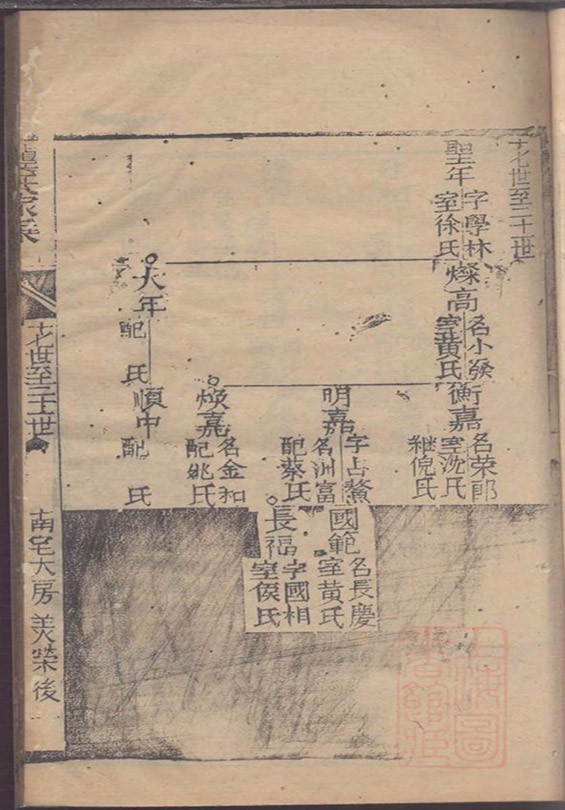 世至二十一世
聖年
字學林
室徐氏
燦高
名小癸
室黃氏
衡嘉
名荣郎
室沈氏
継倪氏
明嘉
字占鰲
名洲富
配蔡氏
國範
名長慶
室黄氏
長福
字國相
室侯氏
煅嘉
名金和
配姚氏
大年
配 氏
順中
配 氏
氏家乘
世至二十一世
南宅大房 美荣後
上海圖書館藏